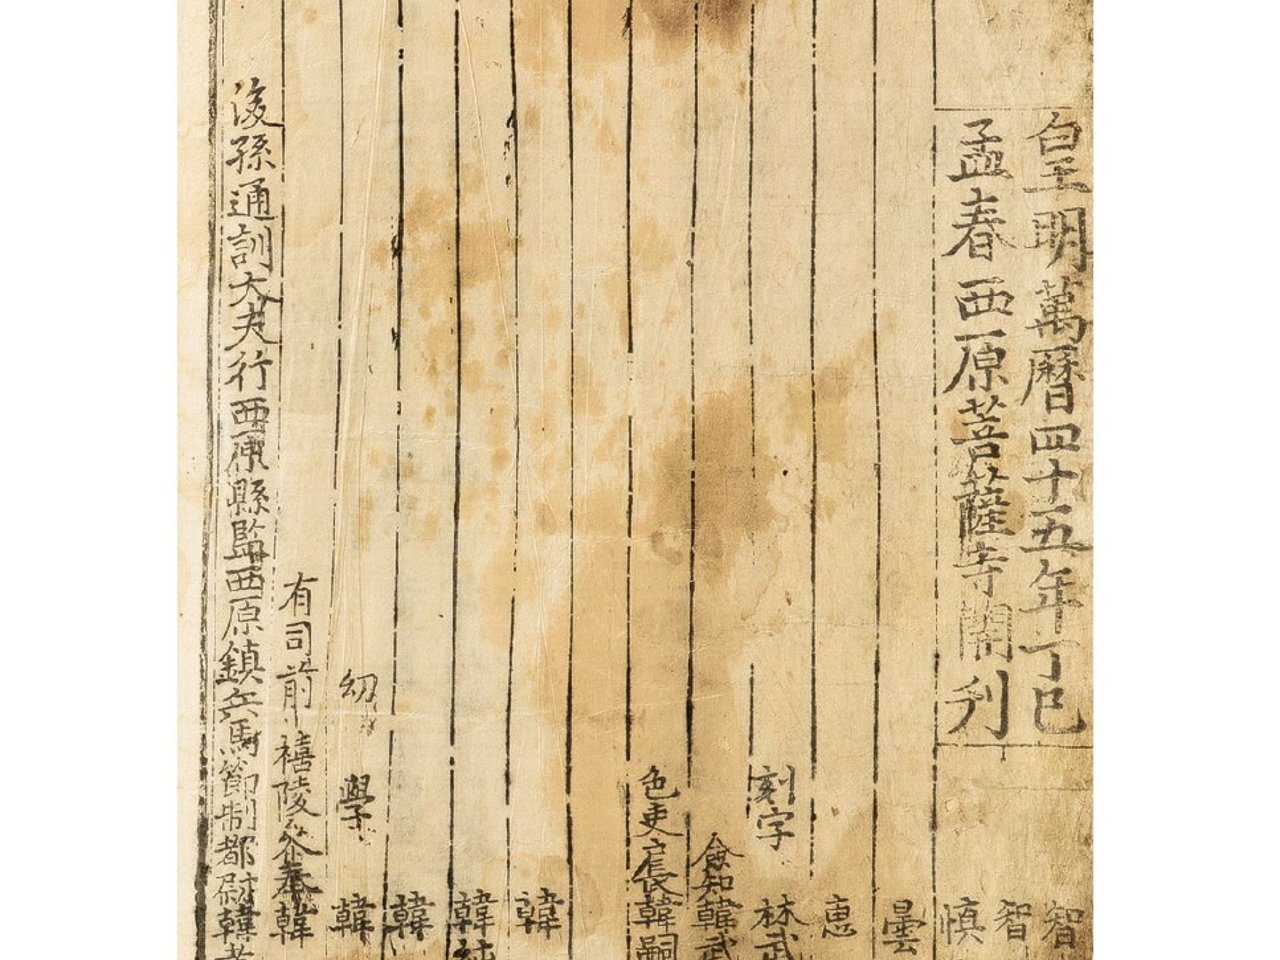 皇明萬曆四十五年丁巳
孟春西原菩薩寺開刋
智
智
慎
曇
惠
刻字 林武
僉知韓武
色吏戶長韓嗣
韓
韓純
韓
幼學 韓
有司前禧陵參奉韓
後孫通訓大夫行西原縣監西原鎮兵馬節制都尉韓孝